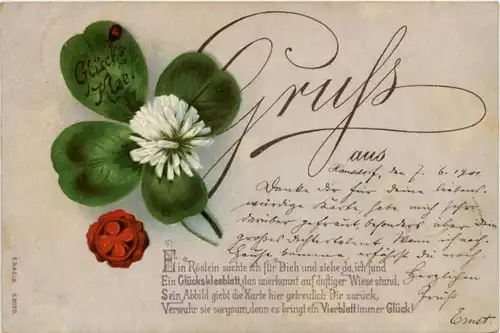 Glücks
Klee!
Gruss
aus
Hansdorf, den 7. 6. 1901
Danke dir für deine liebens-
würdige Karte, habe mich sehr
darüber gefreut besonders über dein
großes Dichtertalent. Wenn ich nach
Hause komme, erhälst du noch
Herzlichen
Gruß
Ernst.
Ein Röslein suchte ich für Dich und siehe da, ich fand
Ein Glückskleeblatt, das unerkannt auf duftiger Wiese stand,
Sein Abbild giebt die Karte hier getreulich Dir zurück,
Verwahr sie sorgsam, denn es bringt ein Vierblatt immer Glück!